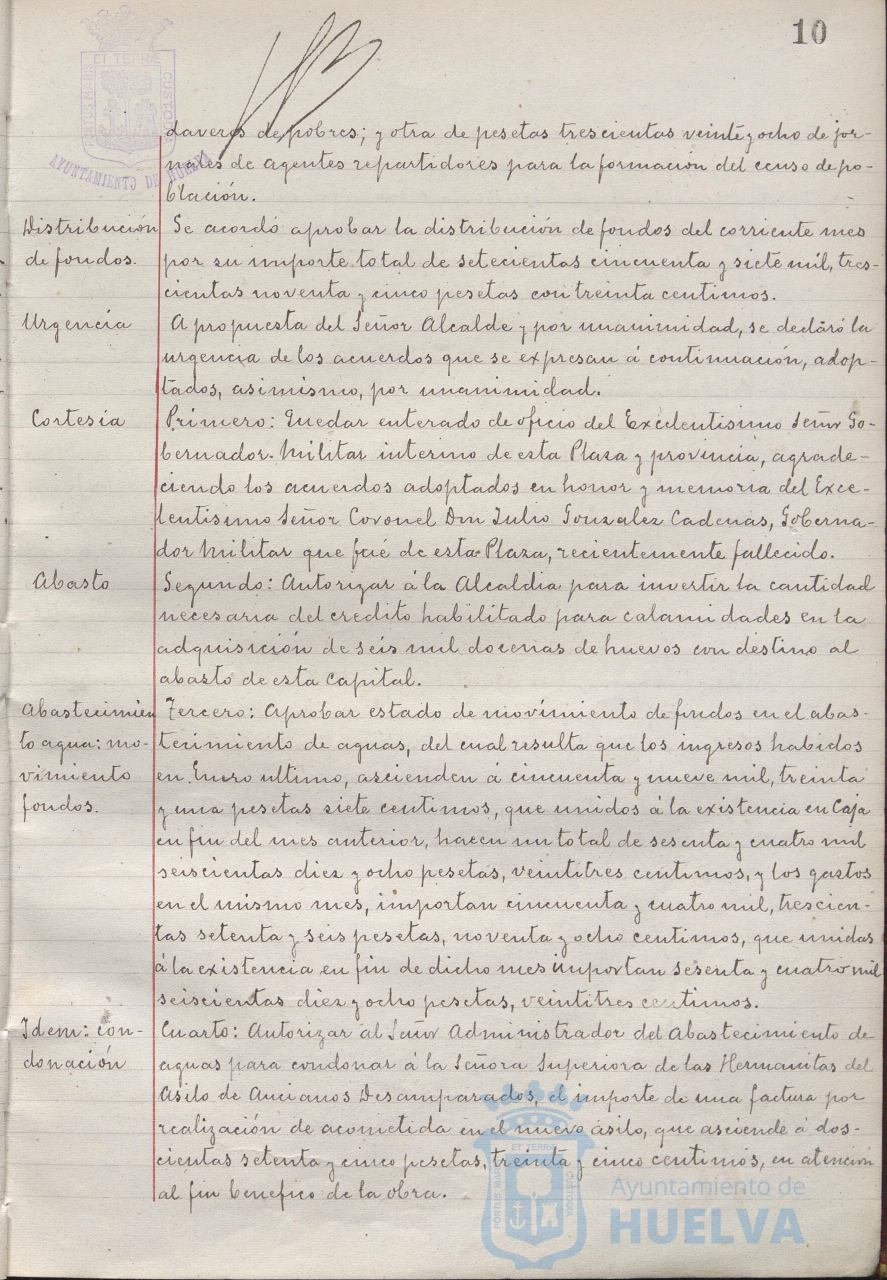 10
ET TERRÆ
PORTUS MARIS
CUSTODIA
AYUNTAMIENTO DE HUELVA
daveres de pobres; y otra de pesetas trescientas veinte y ocho de jor-
nales de agentes repartidores para la formación del censo de po-
blación.
Distribución
de fondos.
Se acordó aprobar la distribución de fondos del corriente mes
por su importe total de setecientas cincuenta y siete mil, tres-
cientas noventa y cinco pesetas con treinta centimos.
Urgencia
A propuesta del Señor Alcalde y por unanimidad, se declaró la
urgencia de los acuerdos que se expresan á continuación, adop-
tados, asimismo, por unanimidad.
Cortesía
Primero: Quedar enterado de oficio del Excelentisimo Señor Go-
bernador Militar interino de esta Plaza y provincia, agrade-
ciendo los acuerdos adoptados en honor y memoria del Exce-
lentisimo Señor Coronel Don Julio Gonzalez Cadenas, Goberna-
dor Militar que fué de esta Plaza, recientemente fallecido.
Abasto
Segundo: Autorizar á la Alcaldia para invertir la cantidad
necesaria del credito habilitado para calamidades en la
adquisición de seis mil docenas de huevos con destino al
abasto de esta Capital.
Abastecimien
to agua: mo-
vimiento
fondos.
Tercero: Aprobar estado de movimiento de fondos en el abas-
tecimiento de aguas, del cual resulta que los ingresos habidos
en Enero ultimo, ascienden á cincuenta y nueve mil, treinta
y una pesetas siete centimos, que unidos á la existencia en Caja
en fin del mes anterior, hacen un total de sesenta y cuatro mil
seiscientas diez y ocho pesetas, veintitres centimos, y los gastos
en el mismo mes, importan cincuenta y cuatro mil, trescien-
tas setenta y seis pesetas, noventa y ocho centimos, que unidas
á la existencia en fin de dicho mes importan sesenta y cuatro mil
seiscientas diez y ocho pesetas, veintitres centimos.
Idem: con-
donación
Cuarto: Autorizar al Señor Administrador del Abastecimiento de
aguas para condonar á la Señora Superiora de las Hermanitas del
Asilo de Ancianos Desamparados, el importe de una factura por
realización de acometida en el nuevo asilo, que asciende á dos-
cientas setenta y cinco pesetas, treinta y cinco centimos, en atención
al fin benefico de la obra.
ET TERRÆ
PORTUS MARIS
CUSTODIA
Ayuntamiento de
HUELVA